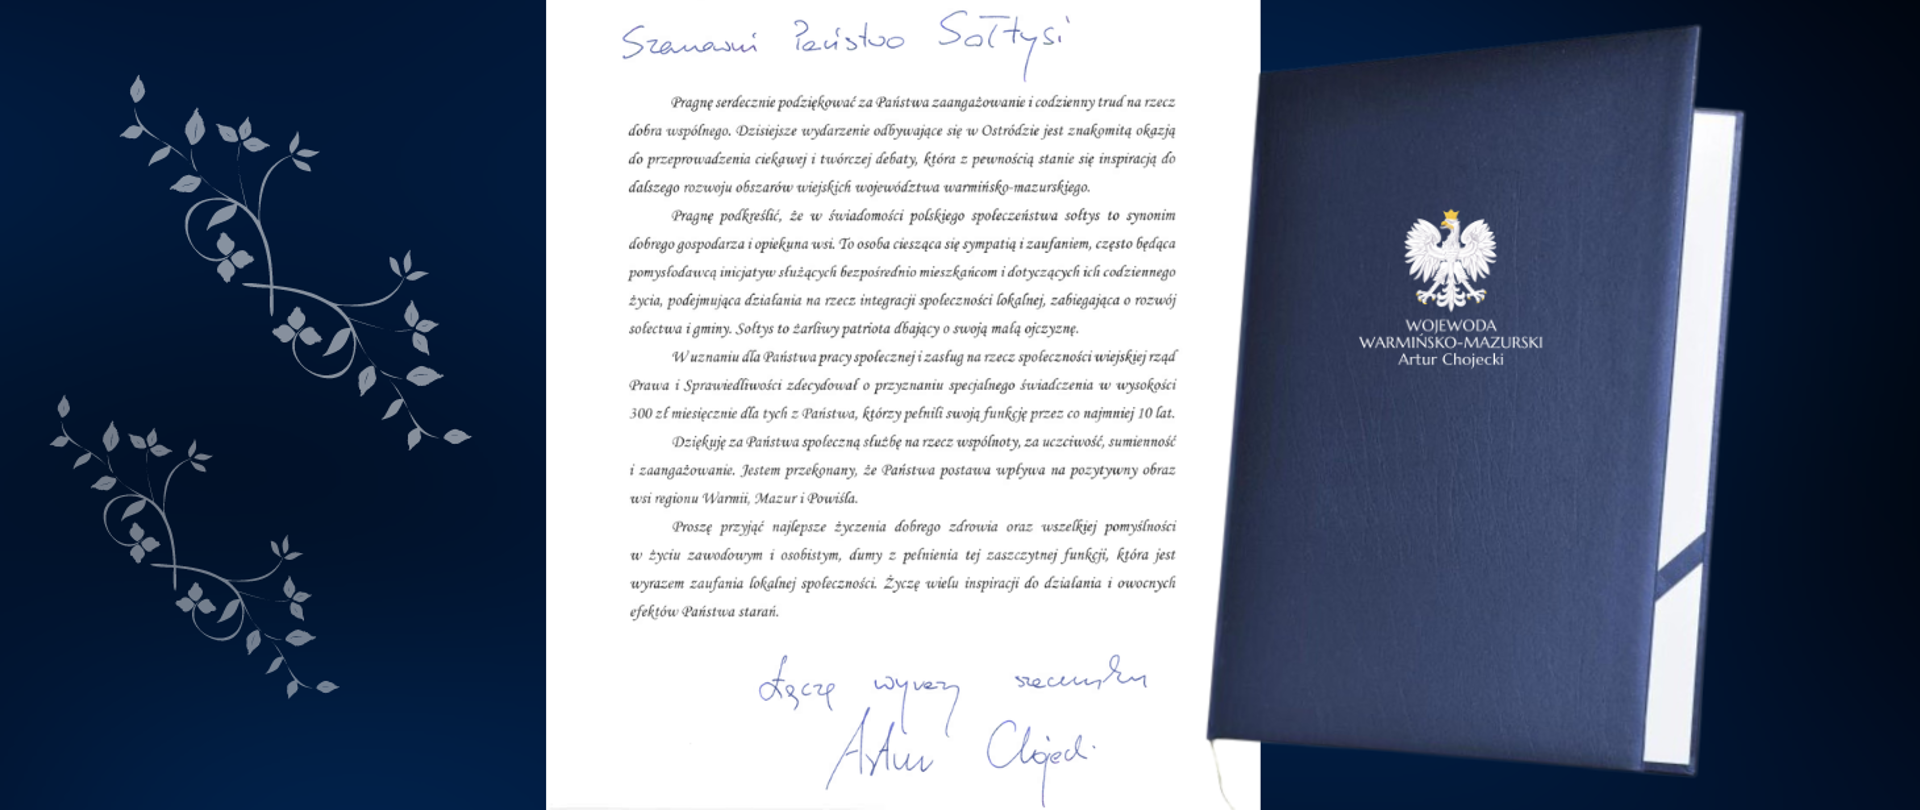 Szanowni Państwo Sołtysi
Pragnę serdecznie podziękować za Państwa zaangażowanie i codzienny trud na rzecz
dobra wspólnego. Dzisiejsze wydarzenie odbywające się w Ostródzie jest znakomitą okazją
do przeprowadzenia ciekawej i twórczej debaty, która z pewnością stanie się inspiracją do
dalszego rozwoju obszarów wiejskich województwa warmińsko-mazurskiego.
Pragnę podkreślić, że w świadomości polskiego społeczeństwa sołtys to synonim
dobrego gospodarza i opiekuna wsi. To osoba ciesząca się sympatią i zaufaniem, często będąca
pomysłodawcą inicjatyw służących bezpośrednio mieszkańcom i dotyczących ich codziennego
życia, podejmująca działania na rzecz integracji społeczności lokalnej, zabiegająca o rozwój
sołectwa i gminy. Sołtys to żarliwy patriota dbający o swoją małą ojczyznę.
W uznaniu dla Państwa pracy społecznej i zasług na rzecz społeczności wiejskiej rząd
Prawa i Sprawiedliwości zdecydował o przyznaniu specjalnego świadczenia w wysokości
300 zł miesięcznie dla tych z Państwa, którzy pełnili swoją funkcję przez co najmniej 10 lat.
Dziękuję za Państwa społeczną służbę na rzecz wspólnoty, za uczciwość, sumienność
i zaangażowanie. Jestem przekonany, że Państwa postawa wpływa na pozytywny obraz
wsi regionu Warmii, Mazur i Powiśla.
Proszę przyjąć najlepsze życzenia dobrego zdrowia oraz wszelkiej pomyślności
w życiu zawodowym i osobistym, dumy z pełnienia tej zaszczytnej funkcji, która jest
wyrazem zaufania lokalnej społeczności. Życzę wielu inspiracji do działania i owocnych
efektów Państwa starań.
Łączę wyrazy szacunku
Artur Chojecki
WOJEWODA
WARMIŃSKO-MAZURSKI
Artur Chojecki